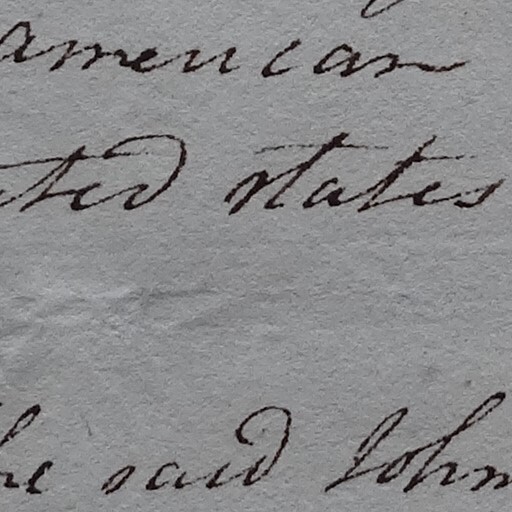 american
ited states
he said John